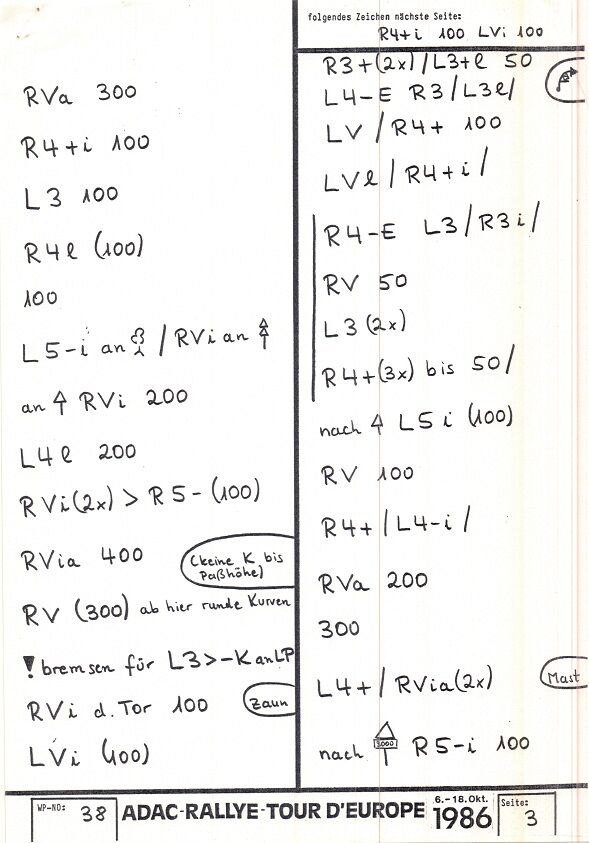 RVa 300
R4+i 100
L3 100
R4l (100)
100
L5-i an / RVi an
an RVi 200
L4l 200
RVi(2x) > R5- (100)
RVia 400
(keine K bis
Paßhöhe)
RV (300) ab hier runde Kurven
! bremsen für L3>-K an LP
RVi d. Tor 100
Zaun
LVi (100)
folgendes Zeichen nächste Seite:
R4+i 100 LVi 100
R3+(2x)/L3+l 50
L4-E R3/L3l/
LV / R4+ 100
LVl / R4+i /
R4-E L3/R3i/
RV 50
L3 (2x)
R4+(3x) bis 50/
nach L5i (100)
RV 100
R4+ / L4-i /
RVa 200
300
L4+ / RVia(2x)
Mast
nach 3000 R5-i 100
WP-NO: 38
ADAC-RALLYE-TOUR D'EUROPE
6.-18.Okt.
1986
Seite:
3